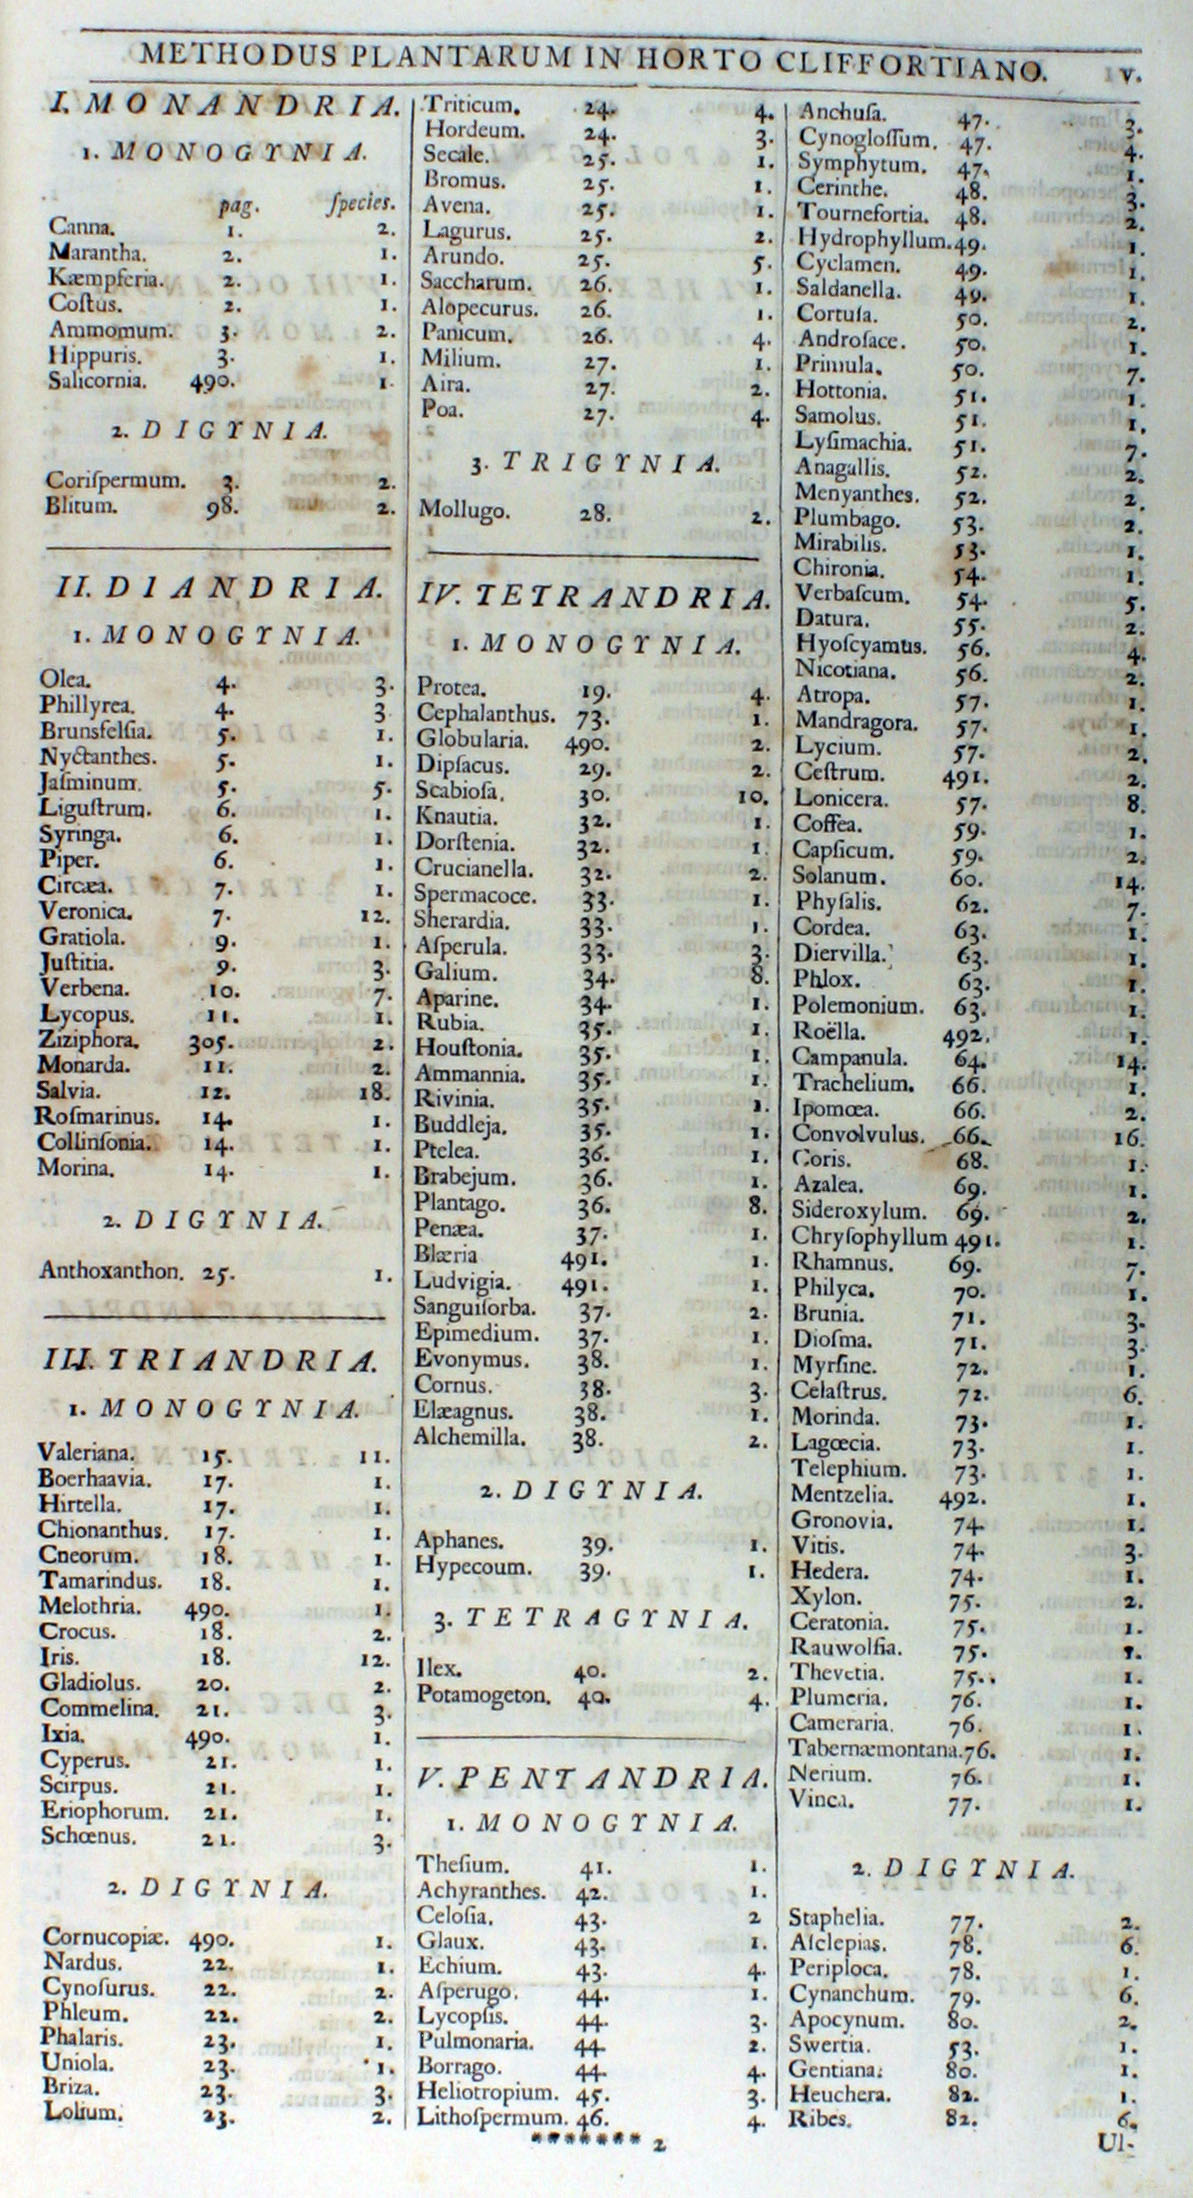 METHODUS PLANTARUM IN HORTO CLIFFORTIANO. v.
I. MONANDRIA.
1. MONOGYNIA.
pag. ſpecies.
Canna. 1. 2.
Marantha. 2. 1.
Kæmpferia. 2. 1.
Coſtus. 2. 1.
Ammomum. 3. 2.
Hippuris. 3. 1.
Salicornia. 490. 1.
2. DIGYNIA.
Coriſpermum. 3. 2.
Blitum. 98. 2.
II. DIANDRIA.
1. MONOGYNIA.
Olea. 4. 3.
Phillyrea. 4. 3
Brunsfelſia. 5. 1.
Nyctanthes. 5. 1.
Jaſminum. 5. 5.
Liguſtrum. 6. 1.
Syringa. 6. 1.
Piper. 6. 1.
Circæa. 7. 1.
Veronica. 7. 12.
Gratiola. 9. 1.
Juſtitia. 9. 3.
Verbena. 10. 7.
Lycopus. 11. 1.
Ziziphora. 305. 2.
Monarda. 11. 2.
Salvia. 12. 18.
Roſmarinus. 14. 1.
Collinſonia. 14. 1.
Morina. 14. 1.
2. DIGYNIA.
Anthoxanthon. 25. 1.
III. TRIANDRIA.
1. MONOGYNIA.
Valeriana. 15. 11.
Boerhaavia. 17. 1.
Hirtella. 17. 1.
Chionanthus. 17. 1.
Cneorum. 18. 1.
Tamarindus. 18. 1.
Melothria. 490. 1.
Crocus. 18. 2.
Iris. 18. 12.
Gladiolus. 20. 2.
Commelina. 21. 3.
Ixia. 490. 1.
Cyperus. 21. 1.
Scirpus. 21. 1.
Eriophorum. 21. 1.
Schœnus. 21. 3.
2. DIGYNIA.
Cornucopiæ. 490. 1.
Nardus. 22. 1.
Cynoſurus. 22. 2.
Phleum. 22. 2.
Phalaris. 23. 1.
Uniola. 23. 1.
Briza. 23. 3.
Lolium. 23. 2.
Triticum. 24. 4.
Hordeum. 24. 3.
Secale. 25. 1.
Bromus. 25. 1.
Avena. 25. 1.
Lagurus. 25. 2.
Arundo. 25. 5.
Saccharum. 26. 1.
Alopecurus. 26. 1.
Panicum. 26. 4.
Milium. 27. 1.
Aira. 27. 2.
Poa. 27. 4.
3. TRIGYNIA.
Mollugo. 28. 2.
IV. TETRANDRIA.
1. MONOGYNIA.
Protea. 19. 4.
Cephalanthus. 73. 1.
Globularia. 490. 2.
Dipſacus. 29. 2.
Scabioſa. 30. 10.
Knautia. 32. 1.
Dorſtenia. 32. 1.
Crucianella. 32. 2.
Spermacoce. 33. 1.
Sherardia. 33. 1.
Aſperula. 33. 3.
Galium. 34. 8.
Aparine. 34. 1.
Rubia. 35. 1.
Houſtonia. 35. 1.
Ammannia. 35. 1.
Rivinia. 35. 1.
Buddleja. 35. 1.
Ptelea. 36. 1.
Brabejum. 36. 1.
Plantago. 36. 8.
Penæa. 37. 1.
Blæria 491. 1.
Ludvigia. 491. 1.
Sanguiſorba. 37. 2.
Epimedium. 37. 1.
Evonymus. 38. 1.
Cornus. 38. 3.
Elæagnus. 38. 1.
Alchemilla. 38. 2.
2. DIGYNIA.
Aphanes. 39. 1.
Hypecoum. 39. 1.
3. TETRAGYNIA.
Ilex. 40. 2.
Potamogeton. 40. 4.
V. PENTANDRIA.
1. MONOGYNIA.
Theſium. 41. 1.
Achyranthes. 42. 1.
Celoſia. 43. 2
Glaux. 43. 1.
Echium. 43. 4.
Aſperugo. 44. 1.
Lycopſis. 44. 3.
Pulmonaria. 44. 2.
Borrago. 44. 4.
Heliotropium. 45. 3.
Lithoſpermum. 46. 4.
******* 2
Anchuſa. 47. 3.
Cynogloſſum. 47. 4.
Symphytum. 47. 1.
Cerinthe. 48. 3.
Tournefortia. 48. 2.
Hydrophyllum. 49. 1.
Cyclamen. 49. 1.
Saldanella. 49. 1.
Cortuſa. 50. 2.
Androſace. 50. 1.
Primula. 50. 7.
Hottonia. 51. 1.
Samolus. 51. 1.
Lyſimachia. 51. 7.
Anagallis. 52. 2.
Menyanthes. 52. 2.
Plumbago. 53. 2.
Mirabilis. 53. 1.
Chironia. 54. 1.
Verbaſcum. 54. 5.
Datura. 55. 2.
Hyoſcyamus. 56. 4.
Nicotiana. 56. 2.
Atropa. 57. 1.
Mandragora. 57. 1.
Lycium. 57. 2.
Ceſtrum. 491. 2.
Lonicera. 57. 8.
Coffea. 59. 1.
Capſicum. 59. 2.
Solanum. 60. 14.
Phyſalis. 62. 7.
Cordea. 63. 1.
Diervilla. 63. 1.
Phlox. 63. 1.
Polemonium. 63. 1.
Roëlla. 492. 1.
Campanula. 64. 14.
Trachelium. 66. 1.
Ipomœa. 66. 2.
Convolvulus. 66. 16.
Coris. 68. 1.
Azalea. 69. 1.
Sideroxylum. 69. 2.
Chryſophyllum 491. 1.
Rhamnus. 69. 7.
Philyca. 70. 1.
Brunia. 71. 3.
Dioſma. 71. 3.
Myrſine. 72. 1.
Celaſtrus. 72. 6.
Morinda. 73. 1.
Lagœcia. 73. 1.
Telephium. 73. 1.
Mentzelia. 492. 1.
Gronovia. 74. 1.
Vitis. 74. 3.
Hedera. 74. 1.
Xylon. 75. 2.
Ceratonia. 75. 1.
Rauwolfia. 75. 1.
Thevetia. 75. 1.
Plumeria. 76. 1.
Cameraria. 76. 1.
Tabernæmontana. 76. 1.
Nerium. 76. 1.
Vinca. 77. 1.
2. DIGYNIA.
Staphelia. 77. 2.
Aſclepias. 78. 6.
Periploca. 78. 1.
Cynanchum. 79. 6.
Apocynum. 80. 2.
Swertia. 53. 1.
Gentiana. 80. 1.
Heuchera. 82. 1.
Ribes. 82. 6.
Ul-